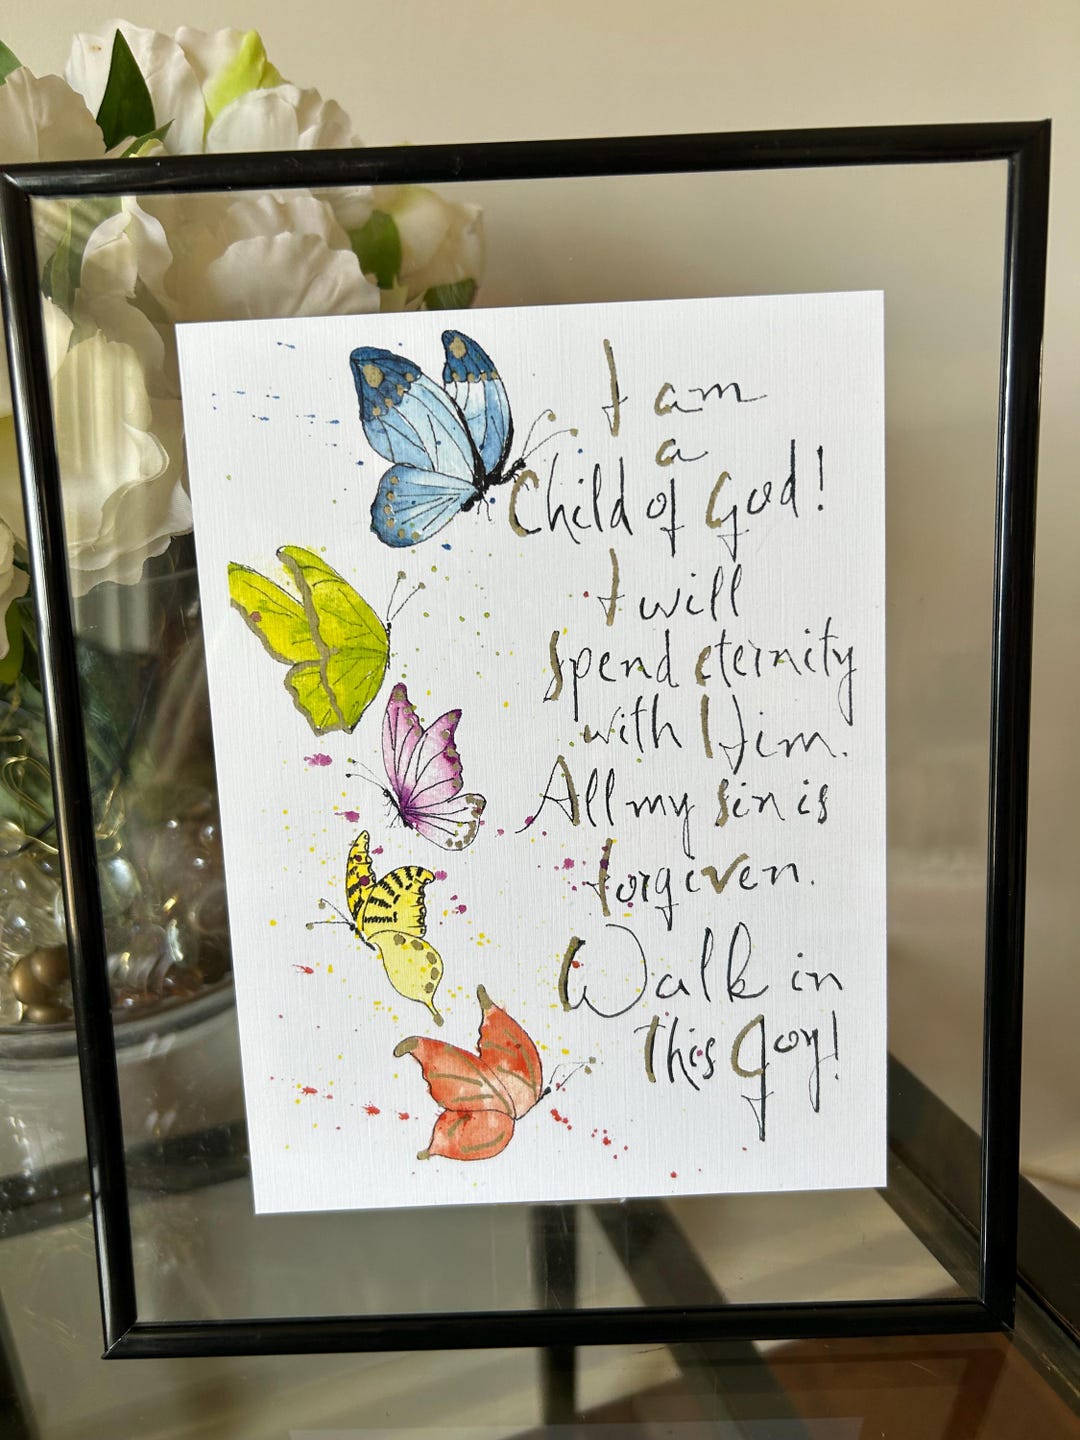 I am
a
Child of God!
I will
spend eternity
with Him.
All my sin is
forgiven.
Walk in
this Joy!